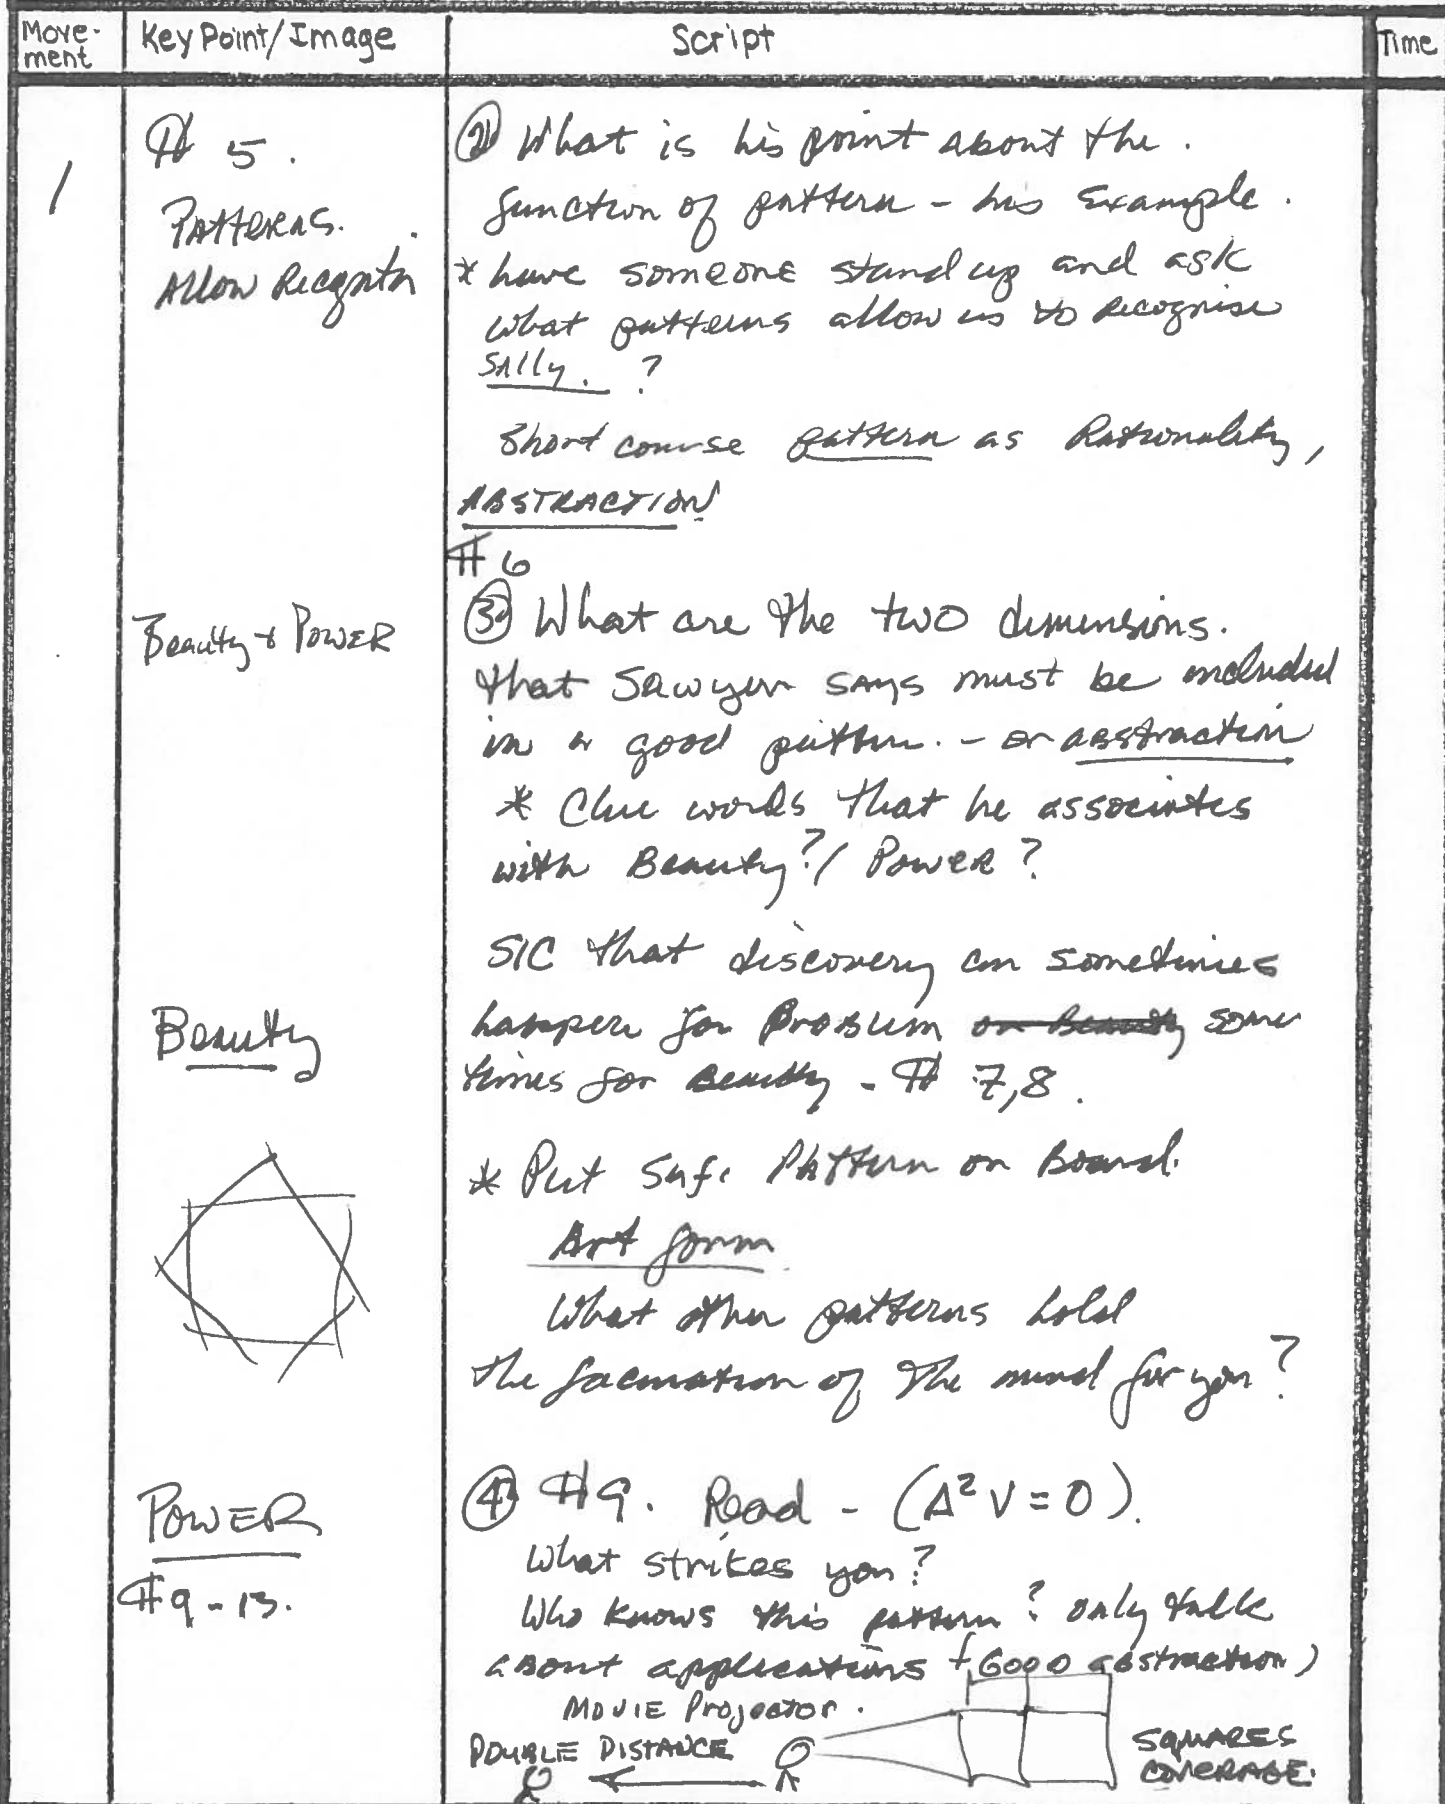 Move-
ment
Key Point/Image
Script
Time
1
# 5.
Patterns.
Allow Recogntn
② What is his point about the.
function of pattern - his Example.
* have someone stand up and ask
what patterns allow us to recognise
Sally. ?
Short course pattern as Rationality,
ABSTRACTION
# 6
Beauty + Power
③ What are the two dimensions.
that Sawyer says must be included
in a good pattern. - or abstraction
* Clue words that he associates
with Beauty? / Power?
Beauty
S/C that discovery can sometimes
happen for Problem or Beauty some
times for Beauty - # 7,8.
* Put Sufi Pattern on Board.
Art form
What other patterns hold
the facination of the mind for you?
Power
# 9-13.
④ # 9. Read - (Δ² V = 0).
What strikes you?
Who knows this pattern? only talk
about applications (Good abstraction)
Movie Projector.
DOUBLE DISTANCE
SQUARES
COVERAGE.